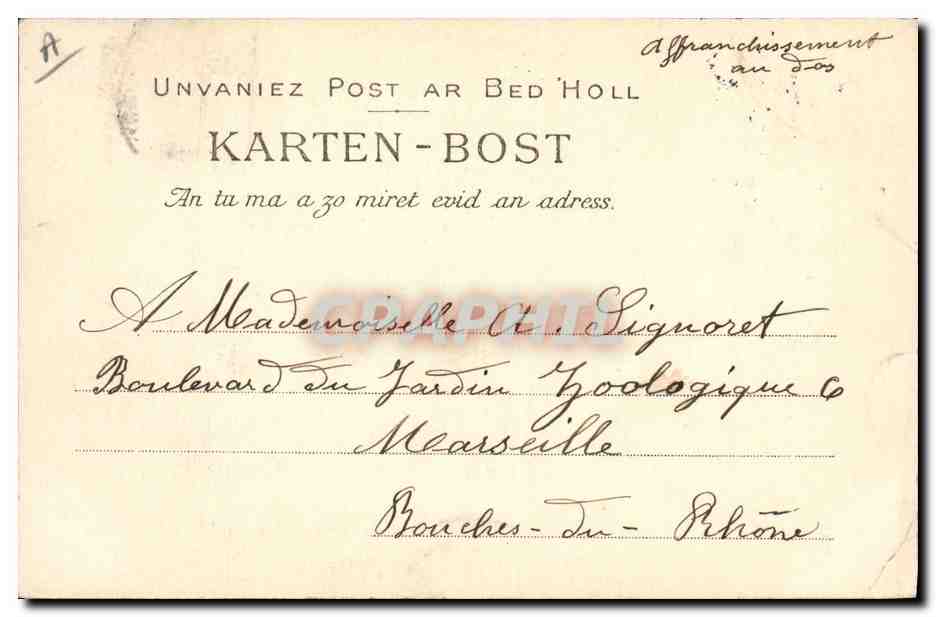 A
Affranchissement
au dos
UNVANIEZ POST AR BED HOLL
KARTEN-BOST
An tu ma a zo miret evid an adress.
CPAPHIL
A Mademoiselle A. Signoret
Boulevard du Jardin Zoologique 6
Marseille
Bouches-du-Rhône